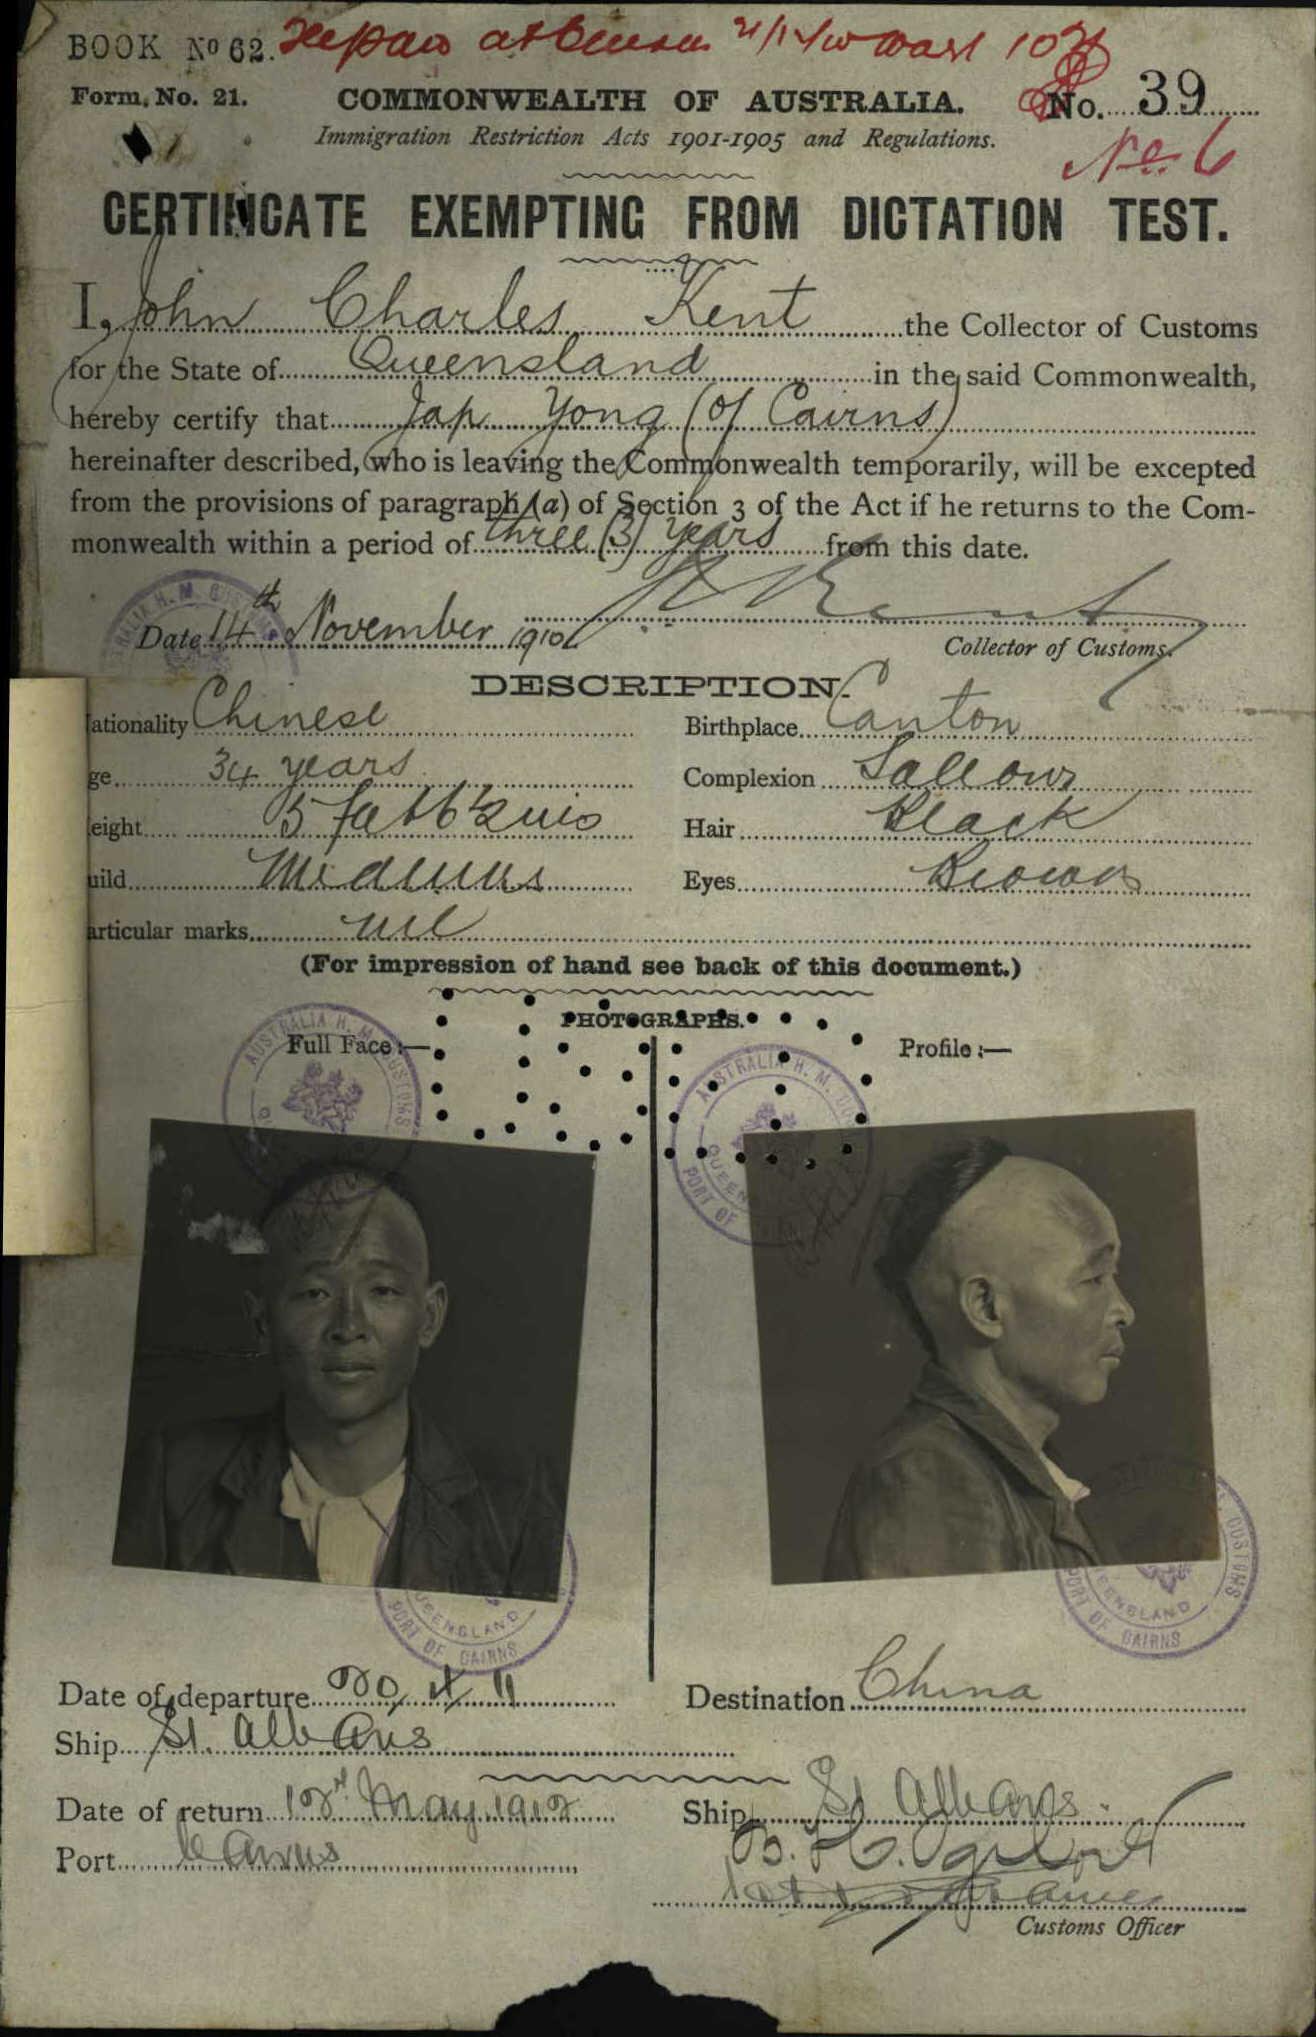 BOOK No 62.
Form. No. 21. COMMONWEALTH OF AUSTRALIA. No. 39
Immigration Restriction Acts 1901-1905 and Regulations.
No. 6
CERTIFICATE EXEMPTING FROM DICTATION TEST.
I, John Charles Kent the Collector of Customs
for the State of Queensland in the said Commonwealth,
hereby certify that Jap Yong (of Cairns)
hereinafter described, who is leaving the Commonwealth temporarily, will be excepted
from the provisions of paragraph (a) of Section 3 of the Act if he returns to the Com-
monwealth within a period of three (3) years from this date.
Date 14th November 1910
Collector of Customs.
DESCRIPTION.
ationality Chinese Birthplace Canton
ge 34 years Complexion Sallow
eight 5 feet 6½ ins Hair Black
uild Medium Eyes Brown
articular marks nil
(For impression of hand see back of this document.)
PHOTOGRAPHS.
Full Face:— Profile:—
AUSTRALIA H. M. CUSTOMS
AUSTRALIA H. M.
QUEEN
PORT OF
QUEENSLAND
PORT OF CAIRNS
CUSTOMS
QUEENSLAND
PORT OF CAIRNS
Date of departure 20 Destination China
Ship St. Albans
Date of return 12th May 1912 Ship St Albans
Port Cairns
Customs Officer